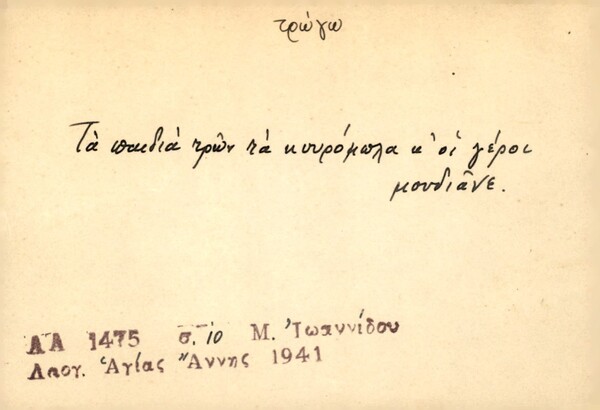 τρώγω
Τὰ παιδιά τρῶν τά κουρόμηλα κ' οἱ γέροι
μουδιᾶνε.
ΛΑ 1475 σ. 10 Μ. Ἰωαννίδου
Λαογ. Ἁγίας Ἄννης 1941